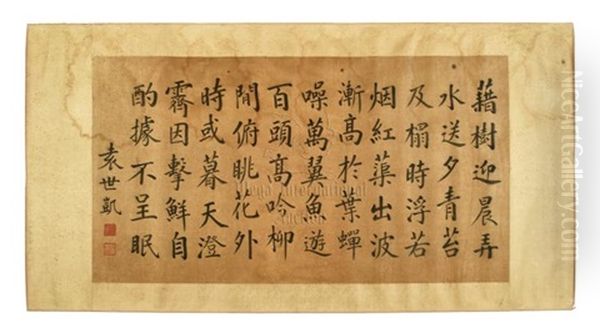 藉樹迎晨弄
水送夕青苔
及榻時浮若
烟紅蕖出波
漸高於葉蟬
噪萬翼魚遊
百頭高吟柳
間俯眺花外
時或暮天澄
霽因擊鮮自
酌據不呈眠
袁世凱
Mega International
Auction
NiceArtGallery.com